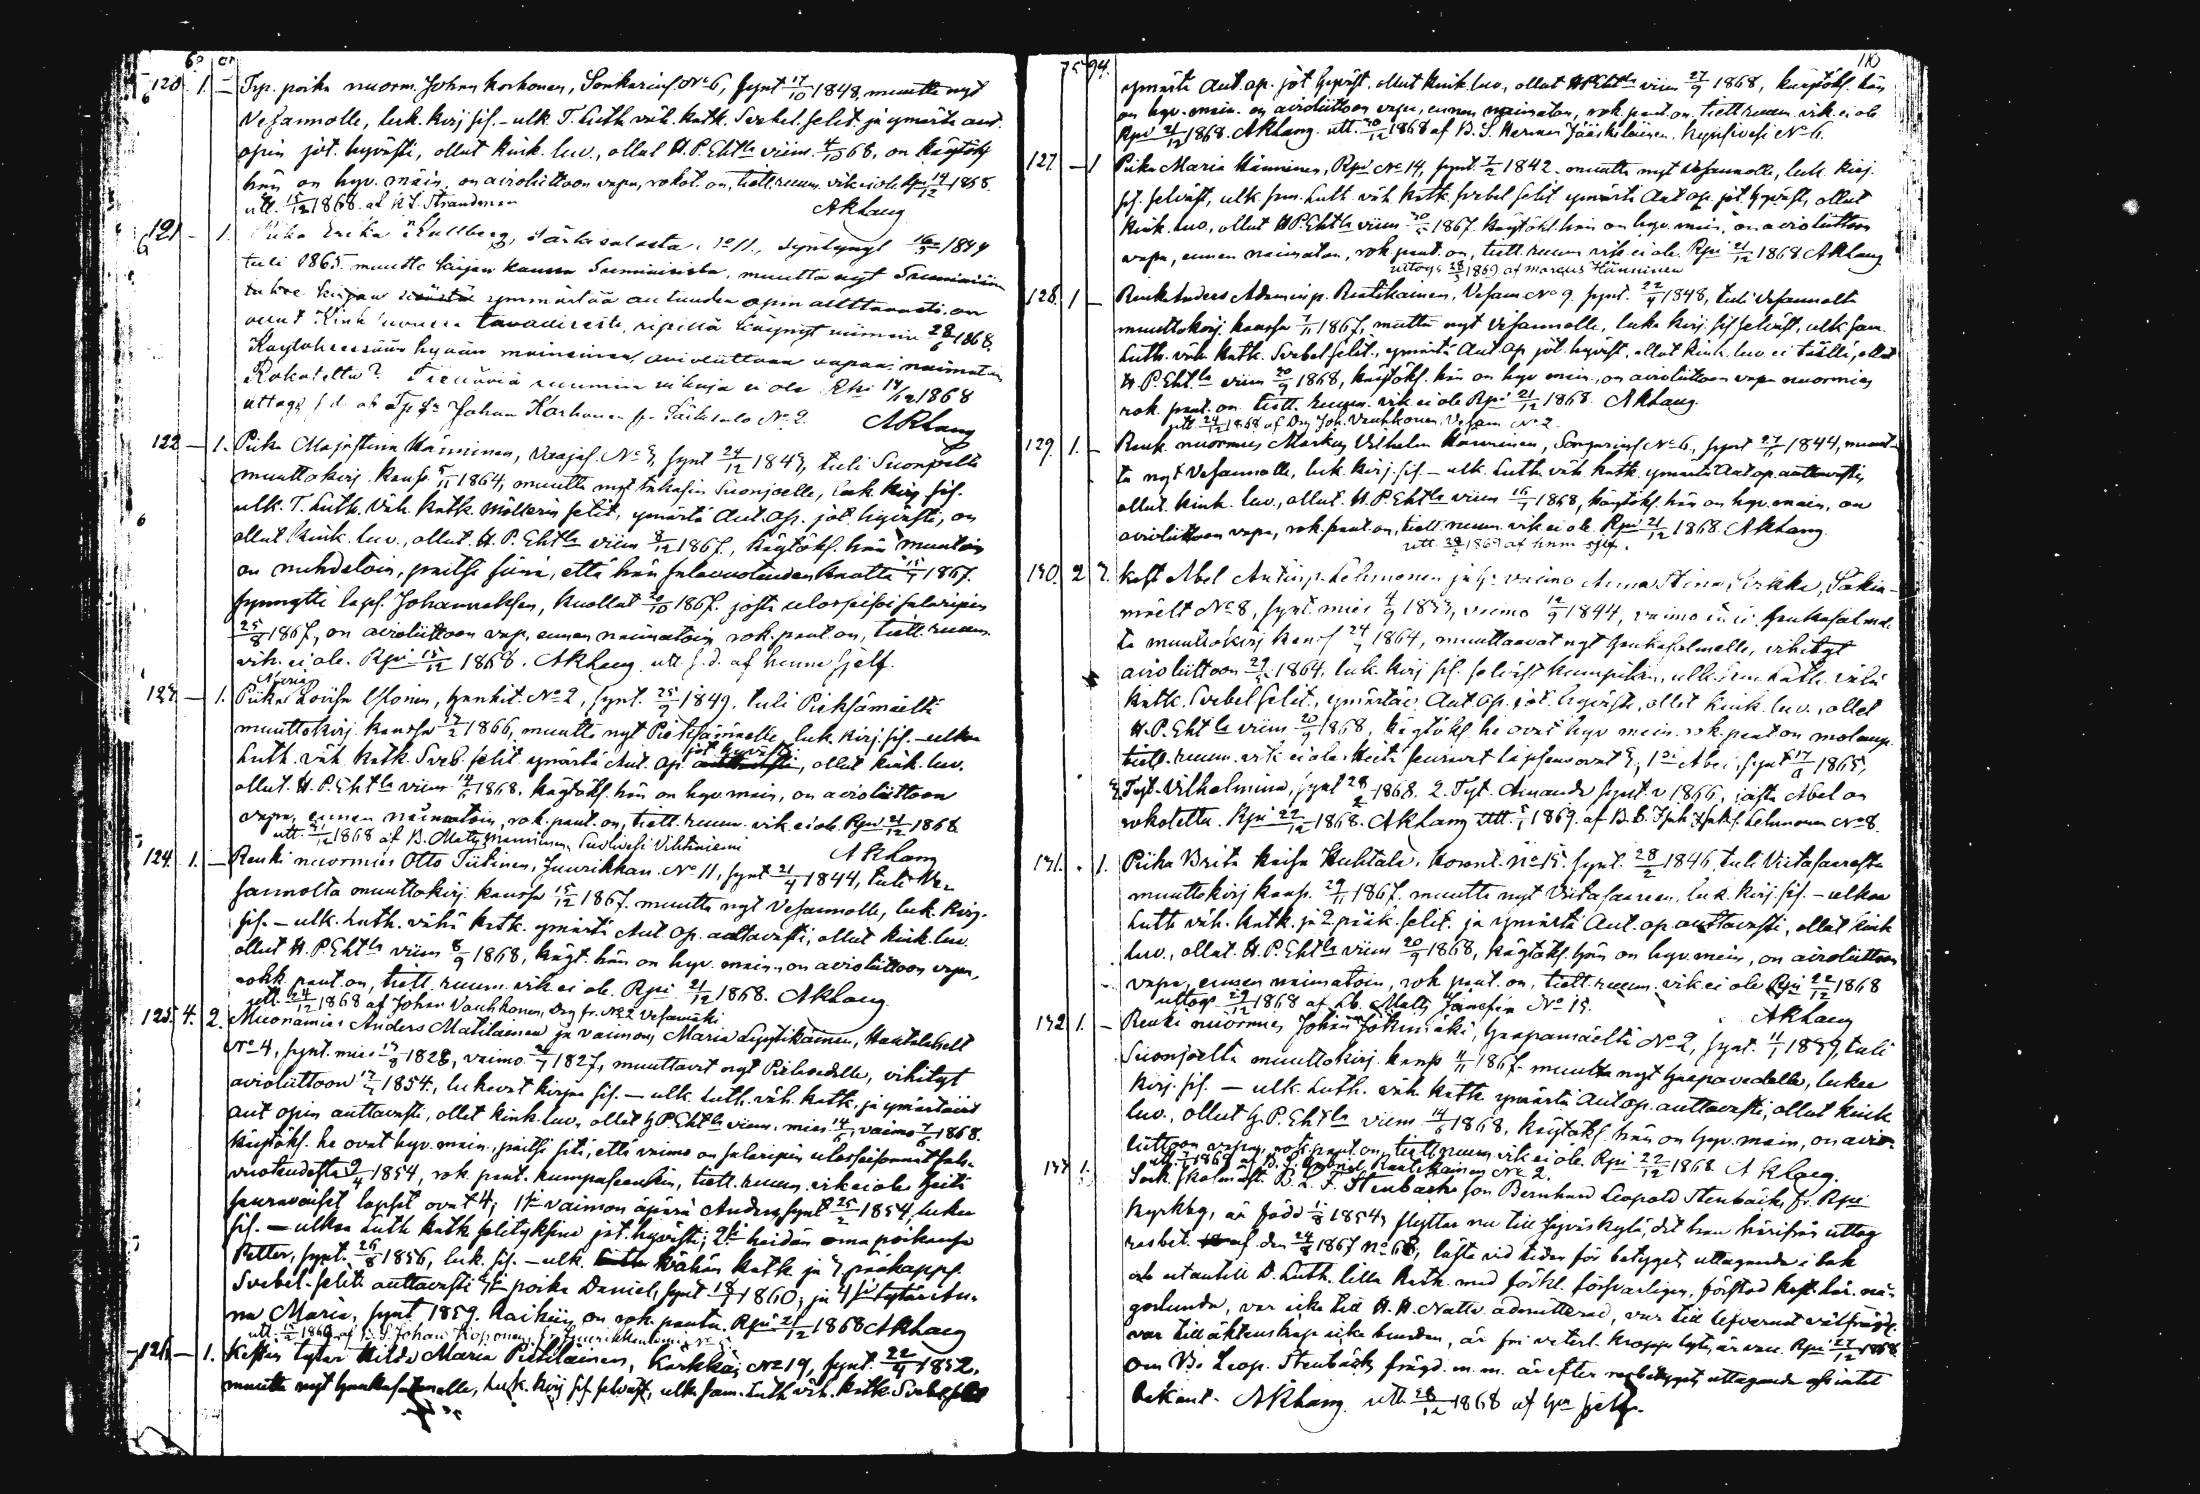 60 81
120. 1. – Trp. poika nuorm. Johan Korhonen, Sonkarins. No 6, synt 17/10 1848, muutta nyt
Vesannolle, luk. kirj sis. – ulk. T. Luth. väh. katk. Svebel. selit. ja ymärtä aut.
opin jot. hyvästi, ollut kink. luv., ollut H. P. Ehtlla viim. 4/10 68, on käytöks
hän on hyv. main. on avioliittoon vapa, rokot. on, tiett. ruum. vik ei ole Rpi 14/12 1868.
utt. 15/12 1868 af K. S. Strandman AKhang
121 – 1. Piika Erika Kullberg, Särkisalosta No 11., syntynyt 16/3 1844
tuli 1865 muutto kirjan kanssa Suminaisista, muutta nyt Suminaisiin
lukee kirjaa ymmärtää autuuden opin auttavasti, on
ollut Kink luvussa tavallisesti, ripillä käynyt viimein 28/6 1868
Käytökseessään hyvään maineinen, avioliittoon vapaa, naimaton
Rokotettu? Tiettäviä ruumin vikoja ei ole Rpi 14/12 1868
uttagit s. d. af Johan Korhonen fr. Särkisalo No 2. AKhang
122 – 1. Piika Maja Stina Hänninen, Vaajas. No 3, synt 24/12 1843, tuli Suonjoelta
muuttokirj. kans. 5/11 1864, muutta nyt takasin Suonjoelle, luk. kirj sis.
ulk. T. Luth. Väh. katk. Möllerin selit, ymärtä Aut. Op. jot. hyvästi, on
ollut Kink. luv., ollut. H. P. Ehtlla viim 8/12 1867, käytöks. hän muutoin
on nuhdetoin, paitsi siinä, että hän salavuoteuden kautta 1867.
synnytti laps. Johanneksen, kuollut 2/10 1867. josta ulosseisoi salaripin
25/8 1867, on avioliittoon vap, ennen naimatoin rok. paut on, tiett. ruum.
vik. ei ole. Rpi 15/12 1868. AKhang utt. s. d. af henne sjelf.
123. – 1. Piika Maria Lovisa Ylönen, Hankit. No 2, synt. 25/9 1849. tuli Pieksämäeltä
muuttokirj. kanssa 1866, muutta nyt Pieksämäelle, luk. kirj. sis. – ulkoa
Luth. väh. Katk Sveb. selit ymärtä Aut. Op. jot. hyvästi, ollut kink. luv.
ollut. H. P. Ehtlla viim 14/6 1868. käytöks. hän on hyv. main, on avioliittoon
vapa, ennen naimatoin, rok. paut. on, tiett. ruum. vik. ei ole. Rpi 21/12 1868
utt. 21/12 1868 af B. Mats Manninen, Sudivesi Vihtaniemi AKhang
124. 1. – Renki nuormies Otto Tiitinen, Juurikkan. No 11, synt 21/4 1844, tuli Ve-
sannolta muuttokirj. kanssa 15/12 1867. muutta nyt Vesannolle, luk. kirj.
sis. – ulk. Luth. vähä katk. ymärtä Aut. Op. auttavasti, ollut kink. luv.
ollut H. P. Ehtlla viim 8/9 1868, käyt. hän on hyv. main. on avioliittoon vapa,
rokk. paut. on, tiett. ruum. vik. ei ole. Rpi 21/12 1868. AKhang
utt. 24/12 1868 af Johan Vauhkonen, Drg fr. No 2 Vesamäki
125. 4. 2. Muonamies Anders Matilainen ja vaimons Maria Lyytikäinen, Hautolahelt
No 4, synt. mies 17/8 1828, vaimo 1827, muuttavat nyt Pielavedelle, vihityt
avioliittoon 1854, lukevat kirjaa sis. – ulk. Luth. väh. katk. ja ymärtävät
aut opin auttavasti, ollet kink. luv, ollet H P. Ehtlla viim. mies 14/6, vaimo 7/6 1868.
Käytöks. he ovat hyv. main. paitsi sitä, että vaimo on salaripin ulosseisonut sala-
vuoteudesta 9/4 1854, rok. paut. kumpaseenkin, tiett. ruum. vik ei ole. Heitä
seuravaiset lapset ovat 4; 1si vaimon äpärä Anders, synt 25/2 1854, lukee
sis. – ulkoa Luth katk selityksine jot. hyvästi; 2si heidän oma poikansa
Petter, synt. 26/8 1856, luk. sis. – ulk. Vähän katk ja 3 pääkapps.
Svebel. selit. auttavasti 3si poika Daniel, synt 18/7 1860, ja 4si tytär An-
na Maria, synt 1859. Kaikiin on rok. pantu. Rpi 21/12 1868 AKhang
utt. 1869 af Johan Koponen fr Juurikkaniemi
126. – 1. Kestin tytär Hilda Maria Pietiläinen, Karkkai, No 19, synt. 22/4 1852,
muutta nyt Hankasalmelle, Luk. kirj sis selväst, ulk. sam. Luth väh. katk Svebel sel
75 94. 110
ymärtä Aut. op. jot hyväst. ollut kink. luv, ollut H P Ehtlla viim 27/9 1868, käytöks. hän
on hyv. main. on avioliittoon vapa, ennen naimaton, rok. paut. on. tiett. ruum. vik. ei ole
Rpi 21/12 1868. AKhang. utt. 30/12 1868 af B. S. Herman Jääskeläinen. Kynsivesi No 6.
127. – 1 Piika Maria Hänninen, Rpi No 14, synt. 7/2 1842. muutta nyt Vesannolle, luk. kirj.
sis. selväst, ulk sam. Luth. väh katk. Svebel selit ymärtä Aut Op. jot. hyväst, ollut
Kink. luv, ollut H P Ehtlla viim 1867. käytöks. hän on hyv. main, on avioliittoon
vapa, ennen naimaton, rok paut. on, tiett. ruum vik. ei ole. Rpi 21/12 1868 AKhang
uttogs 28/3 1869 af Marcus Hänninen
128. 1 – Renk Anders Adaminp. Rautikainen, Vesam. No 9. synt. 22/4 1848, tuli Vesannolta
muuttokirj. kanssa 7/11 1867, muutta nyt Vesannolle, luke kirj. sis selväst, ulk sam
Luth. väh katk. Svebel selit., ymärtä Aut. Op jot. hyväst, ollut kink. luv ei täällä, ollut
H. P. Ehtlla viim 20/9 1868, käytöks. hän on hyv. main, on avioliittoon vapa nuormies
rok. paut. on. tiett. ruum. vik. ei ole Rpi 21/12 1868. AKhang.
utt. 24/12 1868 af Drg Joh. Vauhkonen. Vesam No 2.
129. 1. – Renk. nuormies Markus Vilhelm Hänninen, Songarins. No 6, synt 27/11 1844, muut-
ta nyt Vesannolle, luk. kirj. sis. – ulk. Luth. väh katk. ymärtä Aut op. auttavasti,
ollut kink. luv, ollut. H. P. Ehtlla viim 16/7 1868, käytöks. hän on hyv. main, on
avioliittoon vapa, rok. paut on, tiett. ruum. vik. ei ole. Rpi 21/12 1868. AKhang.
utt. 28/3 1869 af hnm sjelf.
130. 2 3. Kest Abel Antinp. Lehmonen ja hs vaimo Anna Stina Sirkka, Sakin-
mäelt No 8, synt. mies 4/9 1833, vaimo 12/9 1844, vaimo tuli Hankasalmel-
ta muuttokirj kans 24/7 1864, muuttaavat nyt Hankasalmelle, vihityt
avioliittoon 1864. luk. kirj sis. selväst kumpikin, ulk. sam Luth. vähä
katk. Svebel selit., ymärtäv. Aut. Op. jot. hyvästi, ollet kink. luv., ollet
H. P. Ehtlla viim 20/9 1868, käytöks. he ovat hyv. main. rok. paut on molemp.
tiett. ruum. vik. ei ole. Heitä seuravat lapsens ovat 3; 1si Abel, synt 17/6 1865,
3 Tyt. Vilhelmina, synt 28/2 1868. 2. Tyt. Amanda synt. 1866, josta Abel on
rokotettu. Rpi 22/12 1868. AKhang Utt. 5/1 1869. af Lehmonen No 8.
131. . 1. Piika Brita Kaisa Huhtala, Konnt. No 15. synt. 28/2 1846, tuli Viitasaaresta
muuttokirj kans. 29/11 1867. muutta nyt Viitasaareen, luk. kirj. sis. – ulkoa
Luth väh. katk. ja 2 pääk. selit. ja ymärtä Aut. op auttavasti, ollut kink
luv., ollut. H. P. Ehtlla viim 20/9 1868, käytöks. hän on hyv. main, on avioliittoon
vapa, ennen naimatoin, rok paut. on, tiett. ruum. vik ei ole Rpi 22/12 1868
uttogs 29/12 1868 af Lb. Matts Jämsén No 15. AKhang
132. 1. – Renki nuormies Johan Jokimäki, Haapamäeltä No 2, synt. 11/1 1839, tuli
Suonjoelta muuttokirj. kans 11/11 1867. muutta nyt Haapavedelle, lukee
kirj. sis. – ulk. Luth. väh. katk ymärtä Aut op. auttavasti, ollut kink
luv., ollut H. P. Ehtlla viim 14/6 1868. käytöks. hän on hyv. main, on avio-
liittoon vapa, rok. paut. on, tiett. ruum vik ei ole. Rpi 22/12 1868. AKhang.
utt. 1869 af B. S. Gabriel Rautikainen No 2.
133. 1. Sock. skolmäst. B. L. F. Stenbäcks son Bernhard Leopold Stenbäck, fr. Rpi
Kyrkby, är född 1/8 1854, flyttar nu till Jyväskylä, dit han härifrån uttog
resbet. af den 24/8 1867 No 68, läste vid tiden för betygets uttagande i bok
och utantill D. Luth. lilla Kate. med förkl. försvarligen, förstod Krist. lär. nå-
gorlunda, var icke till H. H. Nattv. admitterad, var till lefvernet välfrägd
var till äktenskap icke bunden, är fri veterl. kropps lyte, är vacc. Rpi 27/12 1868
Om B. Leop. Stenbäcks frägd m. m. är efter resbetygets uttagande ej intet
bekant. AKhang. utt. 28/12 1868 af hn sjelf.